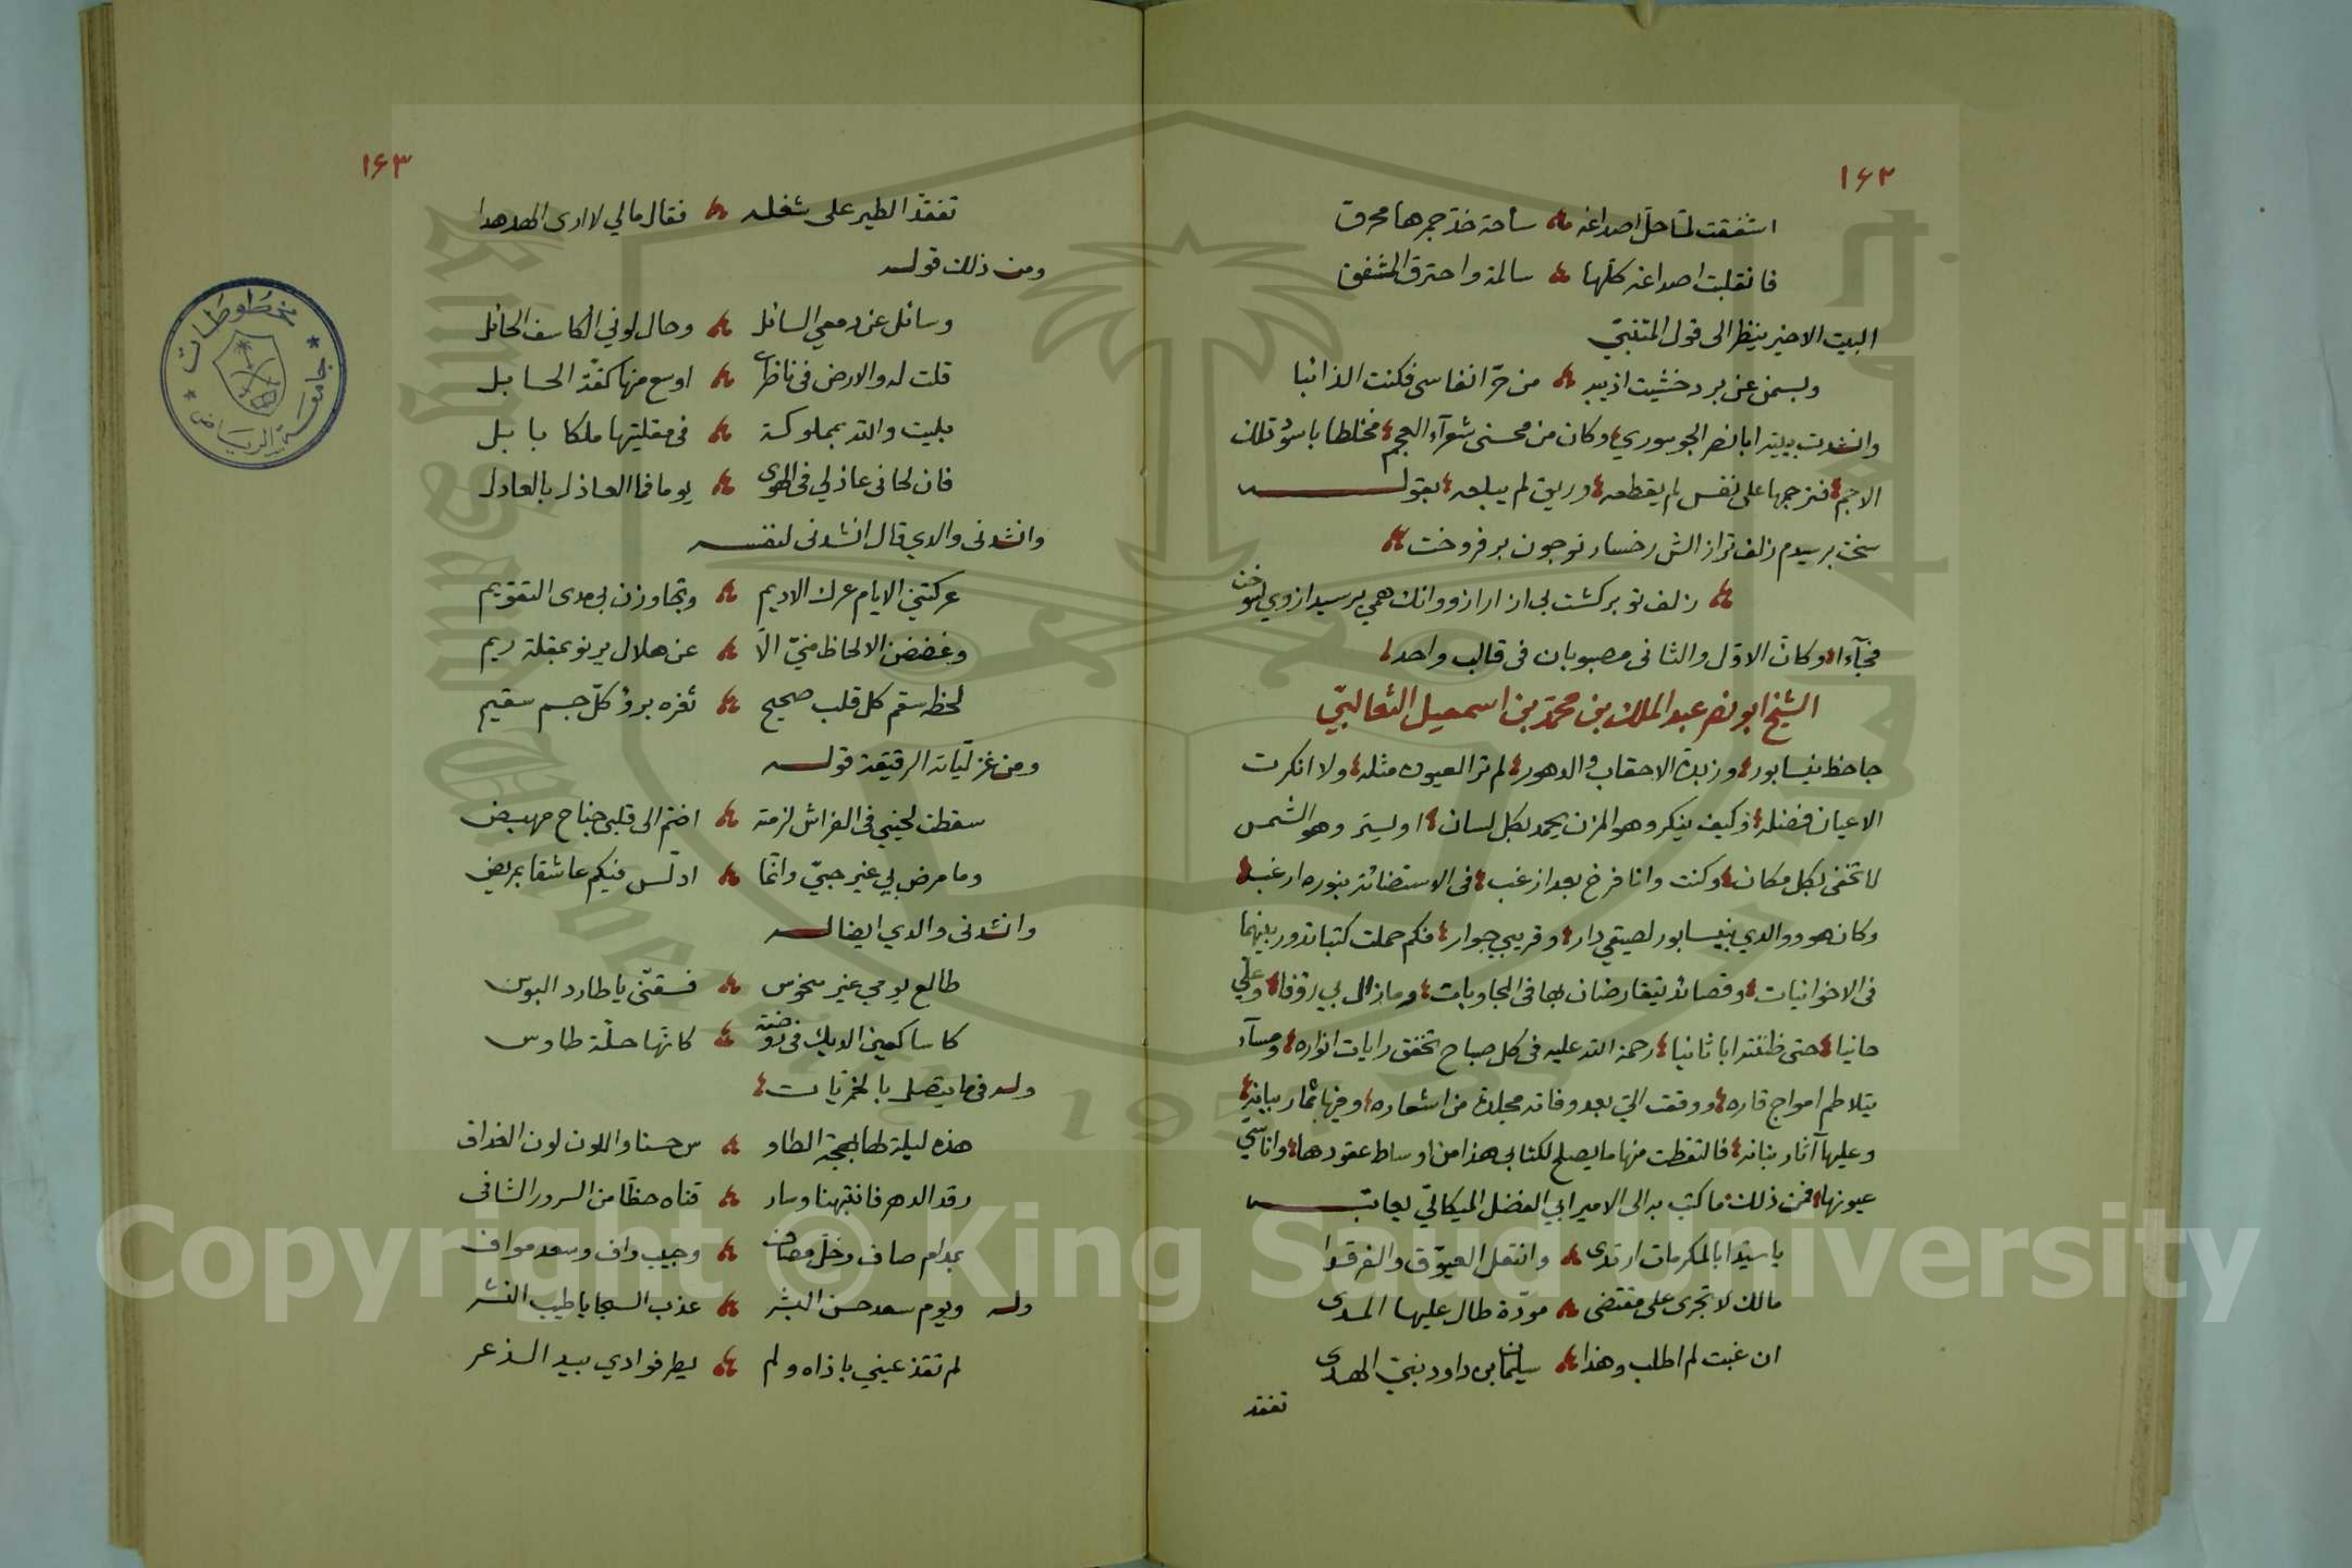 ١٦٢
اشفقت لما حل اصداغه ساحة خد جمرها محرق
فانقلبت اصداغه كلها سالمة واحترق المشفق
البيت الاخير ينظر الى قول المتنبي
وبسمن عن برد خشيت اذيبه من حر انفاسى فكنت الذائبا
وانشدت بيتيه ابا نصر وكان من محسنى شعرآء العجم مختلطا باسود تلك
الاجم فترجمها على نفس لم يقطعه وريق لم يبلعه بقوله
زلف تو برگشت
فجآءا وكان الاوّل والثانى مصبوبان فى قالب واحد
الشيخ ابو نصر عبد الملك بن محمد بن اسمعيل الثعالبيّ
جاحظ نيسابور وزبدة الاحقاب والدهور لم تر العيون مثله ولا انكرت
الاعيان فضله وكيف ينكر وهو المزن يحمد بكل لسان او يستر وهو الشمس
لا تخفى بكل مكان وكنت وانا فرخ بعد ازغب فى الاستضائة بنوره ارغب
وكان هو ووالدي بنيسابور لصيقي دار وقريبي جوار فكم حملت كتبا تدور بينهما
فى الاخوانيات وقصائد يتقارضان بها فى المجاوبات وما زال بي رؤفا وعلي
حانيا حتى ظننته ابا ثانيا رحمة الله عليه فى كل صباح تخفق رايات انواره ومسآء
يتلاطم امواج قاره ووقعت اليّ بعد وفاته مجلدة من اشعاره وفيها ثمار بيانه
وعليها آثار بنانه فالتقطت منها ما يصلح لكتابي هذا من اوساط عقودها واناسي
عيونها فمن ذلك ما كتب به الى الامير ابي الفضل الميكاليّ يعاتبه
يا سيّدا بالمكرمات ارتدى وانتعل العيّوق والفرقدا
مالك لا تجرى على مقتضى مودّة طال عليها المدى
ان غبت لم اطلب وهذا سليمان بن داود نبيّ الهدى
تفقد
١٦٣
تفقّد الطير على شغله فقال مالي لا ارى الهدهدا
ومن ذلك قوله
وسائل عن دمعي السائل وحال لوني الكاسف الحائل
قلت له والارض فى ناظرى اوسع منها كفّة الحابل
بليت والله بمملوكة فى مقلتيها ملكا بابل
فان لحانى عاذلي فى الهوى يوما فما العاذل بالعادل
وانشدنى والدي قال انشدنى لنفسه
عركتني الايام عرك الاديم وتجاوزن بي مدى التقويم
وغضضن الالحاظ منيّ الّا عن هلال يرنو بمقلة ريم
لحظه سقم كل قلب صحيح ثغره برؤ كلّ جسم سقيم
ومن غزليّاته الرقيقة قوله
سقطت لحيني فى الفراش لزمته اضم الى قلبى جناح مهيض
وما مرض بي غير حبيّ وانّما ادلّس فيكم عاشقا بمريض
وانشدنى والدي ايضا له
طالع يومي غير منحوس فسقّنى يا طارد البوس
كاسا كعين الديك فى روضة كانّها حلّة طاوس
وله فيما يتصل بالخمريّات
هذه ليلة لها بهجة الطاو س حسنا واللون لون الغداف
رقد الدهر فانتبهنا وسار قناه حظّا من السرور الشافى
بمدام صاف وخلّ مصاف وحبيب واف وسعد مواف
وله ويوم سعد حسن البشر عذب السجايا طيب النشر
لم تقذ عيني باذاه ولم يطر فوادي بيد الذعر
مخطوطات
جامعة الرياض
Copyright © King Saud University
King Saud University
195